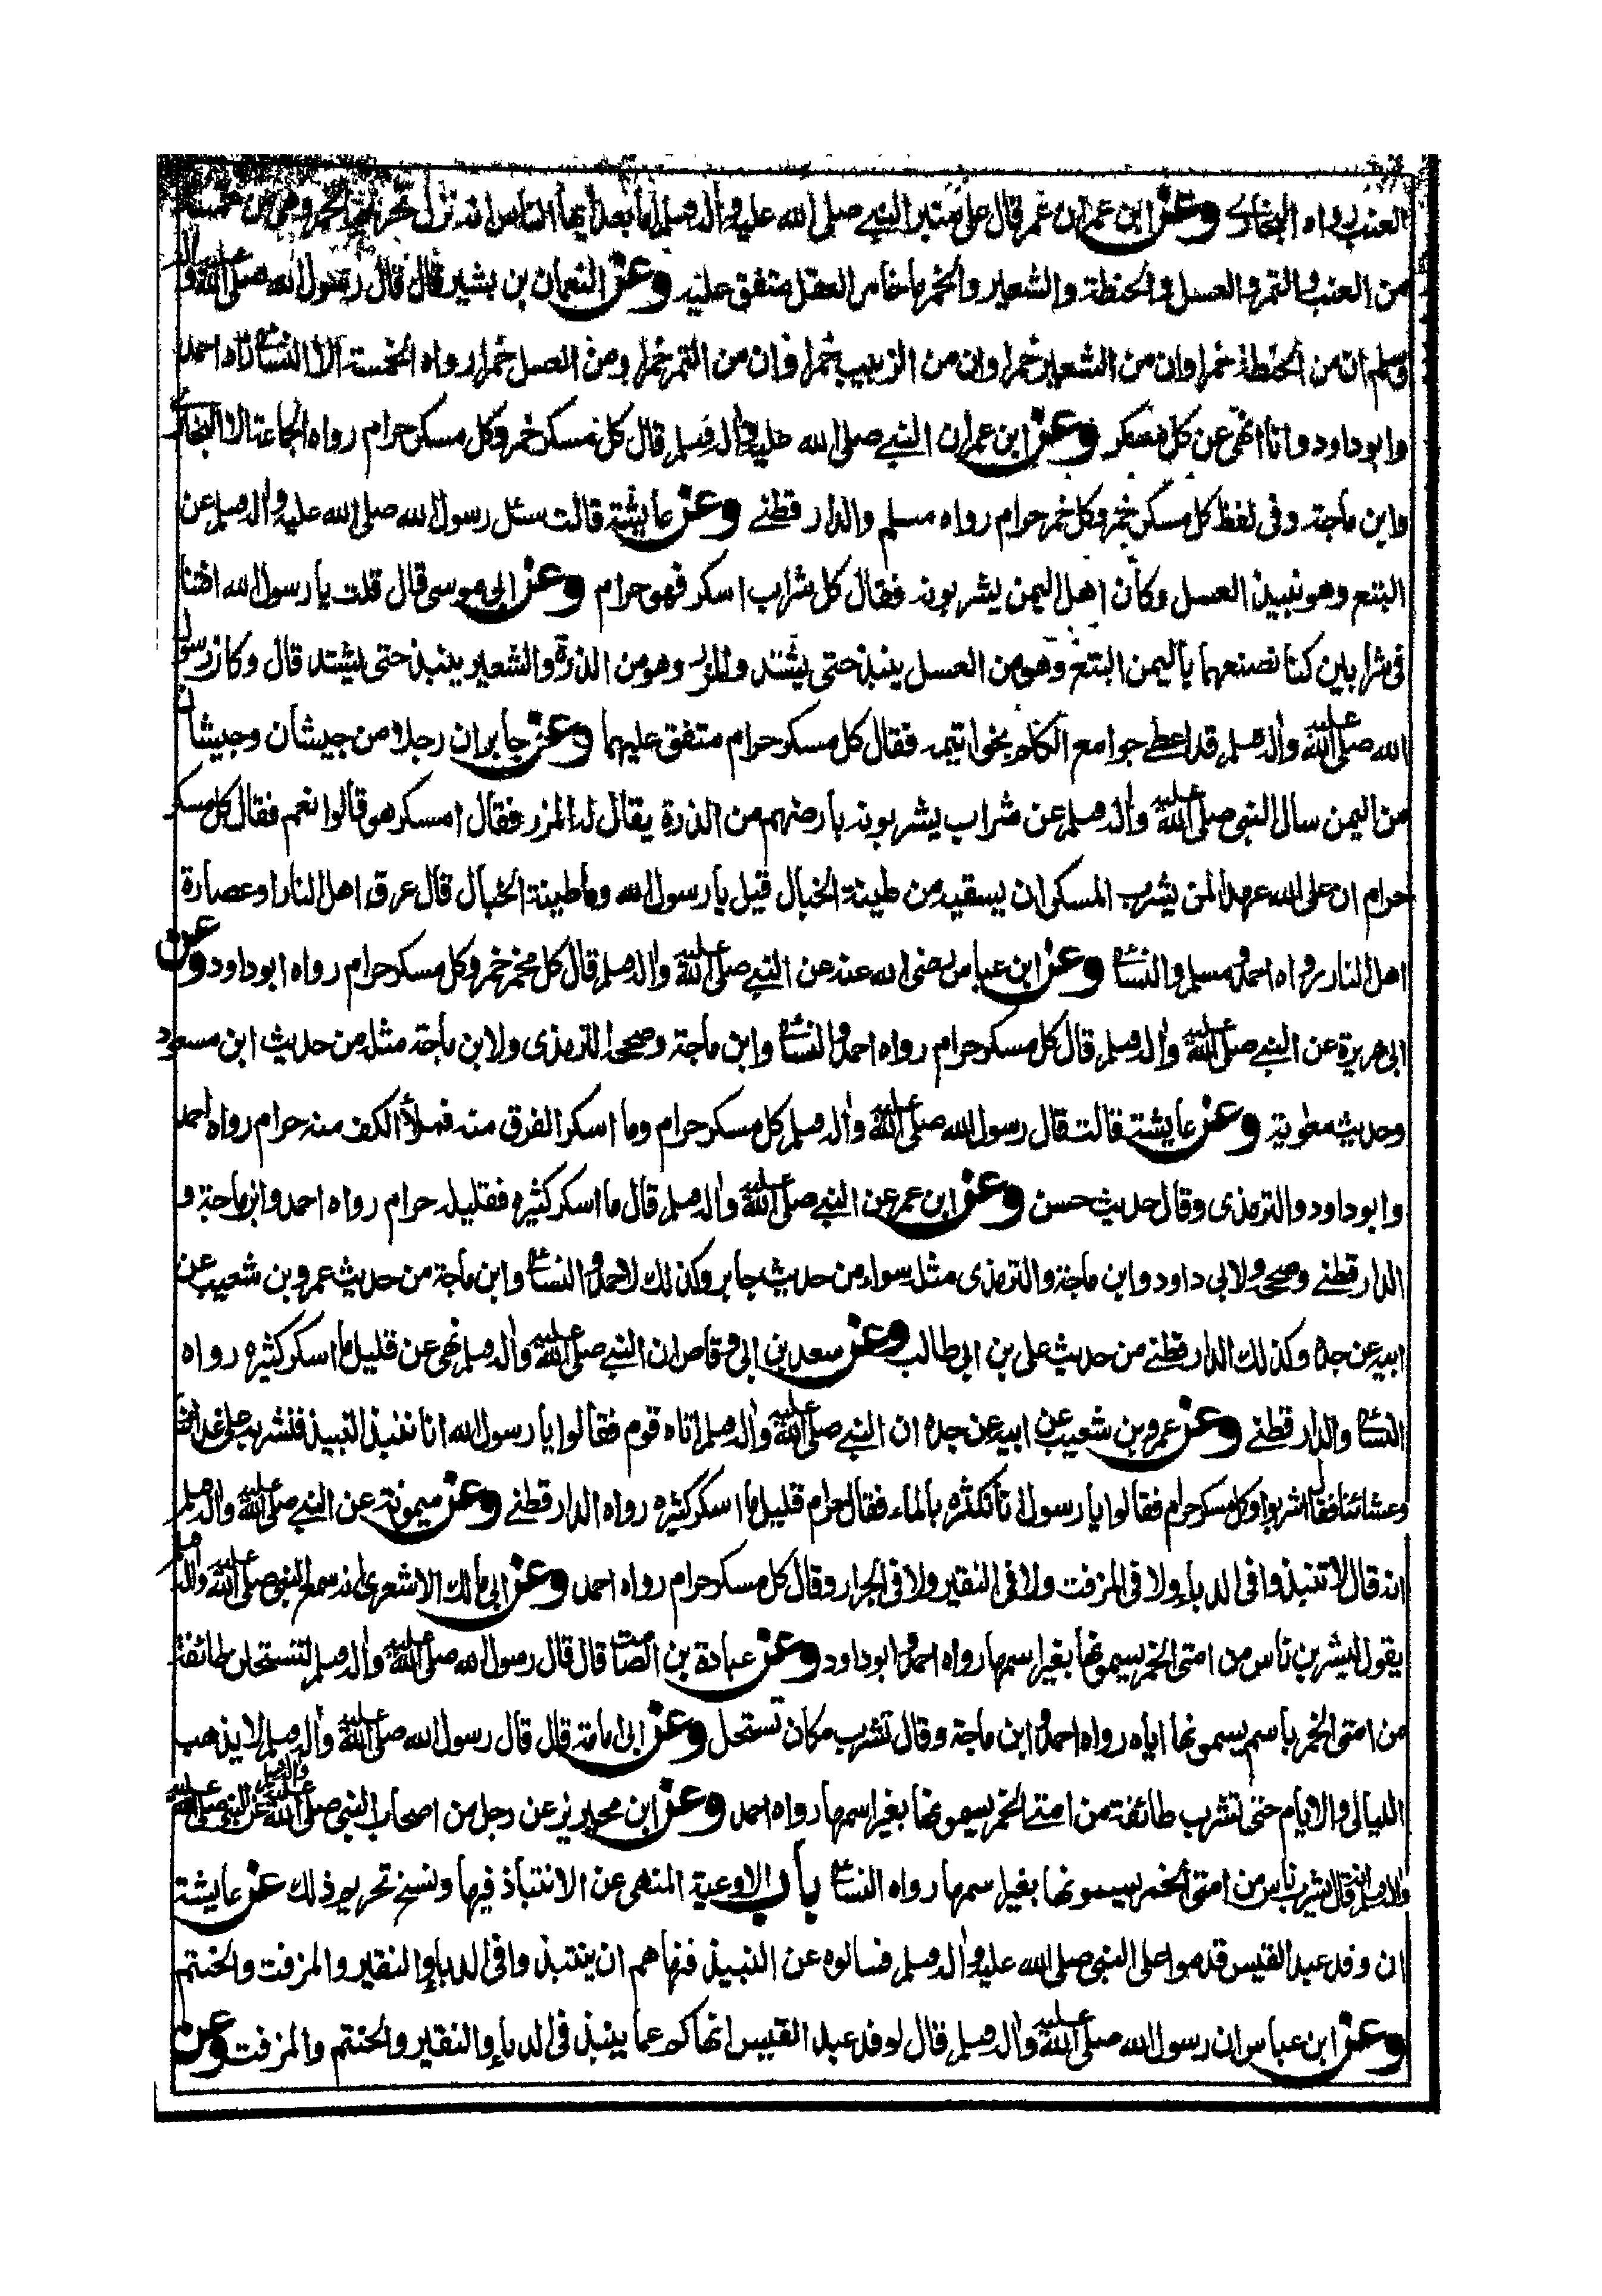 العنب رواه البخاري وعن ابن عمر ان عمر قال على منبر النبي صلى الله عليه واله وسلم اما بعد ايها الناس انه نزل تحريم الخمر وهي من خمسة
من العنب والتمر والعسل والحنطة والشعير والخمر ما خامر العقل متفق عليه وعن النعمان بن بشير قال قال رسول الله صلى الله عليه واله
وسلم ان من الحنطة خمرا وان من الشعير خمرا وان من الزبيب خمرا وان من التمر خمرا ومن العسل خمرا رواه الخمسة الا النسائي زاد احمد
وابو داود وانا انهى عن كل مسكر وعن ابن عمر ان النبي صلى الله عليه واله وسلم قال كل مسكر خمر وكل مسكر حرام رواه الجماعة الا البخاري
وابن ماجة وفى لفظ كل مسكر خمر وكل خمر حرام رواه مسلم والدار قطني وعن عايشة قالت سئل رسول الله صلى الله عليه واله وسلم عن
البتع وهو نبيذ العسل وكان اهل اليمن يشربونه فقال كل شراب اسكر فهو حرام وعن ابى موسى قال قلت يا رسول الله افتنا
فى شرابين كنا نصنعهما باليمن البتع وهو من العسل ينبذ حتى يشتد والمزر وهو من الذرة والشعير ينبذ حتى يشتد قال وكان رسول
الله صلى الله عليه واله وسلم قد اعطى جوامع الكلم بخواتيمه فقال كل مسكر حرام متفق عليهما وعن جابر ان رجلا من جيشان وجيشان
من اليمن سال النبى صلى الله عليه واله وسلم عن شراب يشربونه بارضهم من الذرة يقال له المزر فقال امسكر هو قالوا نعم فقال كل مسكر
حرام ان على الله عهدا لمن يشرب المسكر ان يسقيه من طينة الخبال قيل يا رسول الله وما طينة الخبال قال عرق اهل النار او عصارة
اهل النار رواه احمد ومسلم والنسائي وعن ابن عباس رضى الله عنه عن النبي صلى الله عليه واله وسلم قال كل مخمر خمر وكل مسكر حرام رواه ابو داود وعن
ابى هريرة عن النبي صلى الله عليه واله وسلم قال كل مسكر حرام رواه احمد والنسائي وابن ماجة وصححه الترمذى ولابن ماجة مثله من حديث ابن مسعود
وحديث معوية وعن عايشة قالت قال رسول الله صلى الله عليه واله وسلم كل مسكر حرام وما اسكر الفرق منه فملأ الكف منه حرام رواه احمد
وابو داود والترمذى وقال حديث حسن وعن ابن عمر عن النبي صلى الله عليه واله وسلم قال ما اسكر كثيره فقليله حرام رواه احمد وابن ماجة و
الدار قطني وصححه ولابى داود وابن ماجة والترمذى مثله سواء من حديث جابر وكذلك لاحمد والنسائي وابن ماجة من حديث عمرو بن شعيب عن
ابيه عن جده وكذلك الدار قطني من حديث على بن ابى طالب وعن سعد بن ابى وقاص ان النبي صلى الله عليه واله وسلم نهى عن قليل ما اسكر كثيره رواه
النسائي والدار قطني وعن عمرو بن شعيب عن ابيه عن جده ان النبي صلى الله عليه واله وسلم اتاه قوم فقالوا يا رسول الله انا ننبذ النبيذ فنشربه على غدائنا
وعشائنا فقال اشربوا وكل مسكر حرام فقالوا يا رسول الله انا نكثره بالماء فقال حرام قليل ما اسكر كثيره رواه الدار قطني وعن ميمونة عن النبي صلى الله عليه واله وسلم
انه قال لا تنبذوا فى الدباء ولا فى المزفت ولا فى النقير ولا فى الجرار وقال كل مسكر حرام رواه احمد وعن ابى مالك الاشعرى انه سمع النبي صلى الله عليه واله وسلم
يقول ليشربن ناس من امتى الخمر يسمونها بغير اسمها رواه احمد وابو داود وعن عبادة بن الصامت قال قال رسول الله صلى الله عليه واله وسلم لتستحلن طائفة
من امتى الخمر باسم يسمونها اياه رواه احمد وابن ماجة وقال تشرب مكان تستحل وعن ابى امامة قال قال رسول الله صلى الله عليه واله وسلم لا يذهب
الليالى والايام حتى تشرب طائفة من امتي الخمر يسمونها بغير اسمها رواه احمد وعن ابن محيريز عن رجل من اصحاب النبى صلى الله عليه واله وسلم عن النبى صلى الله عليه
واله وسلم انه قال يشرب ناس من امتى الخمر يسمونها بغير اسمها رواه النسائي باب الاوعية المنهى عن الانتباذ فيها ونسخ تحريم ذلك عن عايشة
ان وفد عبد القيس قدموا على النبى صلى الله عليه واله وسلم فسالوه عن النبيذ فنهاهم ان ينتبذوا فى الدباء والنقير والمزفت والحنتم
وعن ابن عباس ان رسول الله صلى الله عليه واله وسلم قال لوفد عبد القيس انهاكم عما ينبذ فى الدباء والنقير والحنتم والمزفت وعن